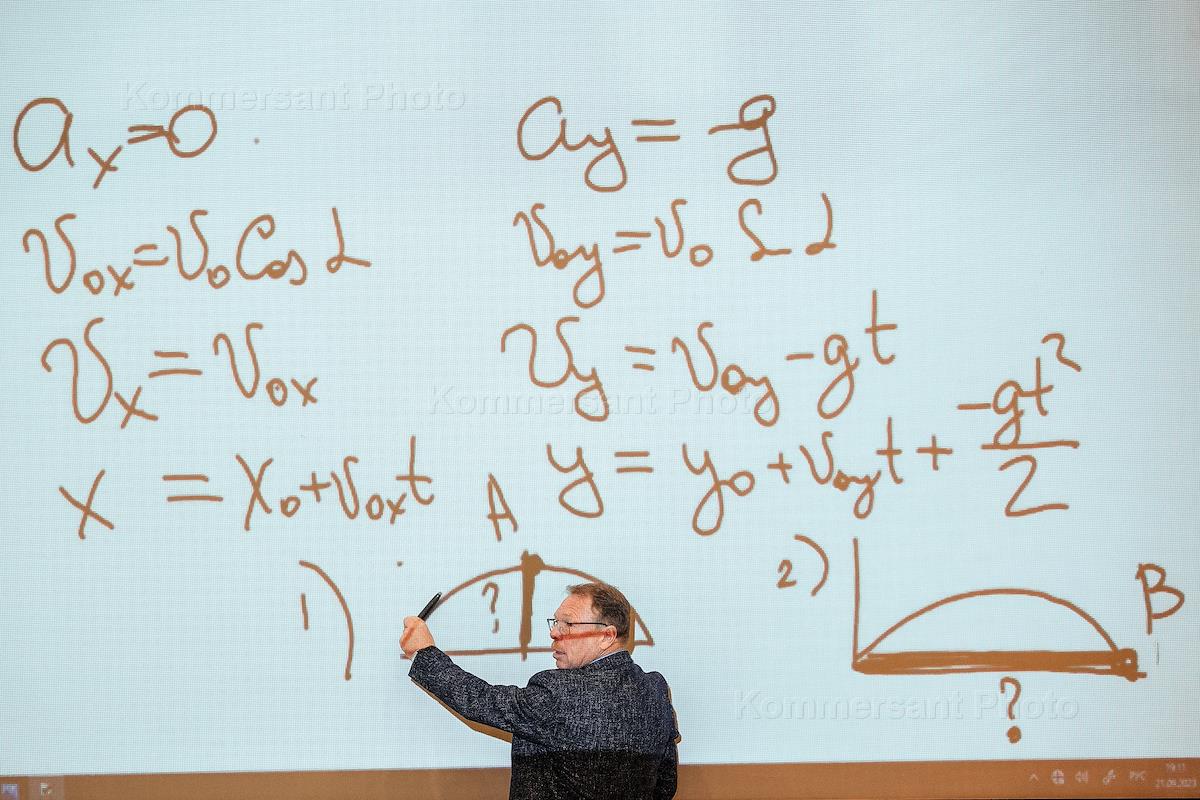 Kommersant Photo
aₓ=0. a_y = -g
v₀ₓ=v₀ Cos α v₀y=v₀ S α
vₓ = v₀ₓ v_y = v₀y - gt
Kommersant Photo
x = x₀+v₀ₓt y = y₀+v₀yt + -gt²/2
1) A ?
2) B ?
Kommersant Photo
РУС 19:11
21.09.2023